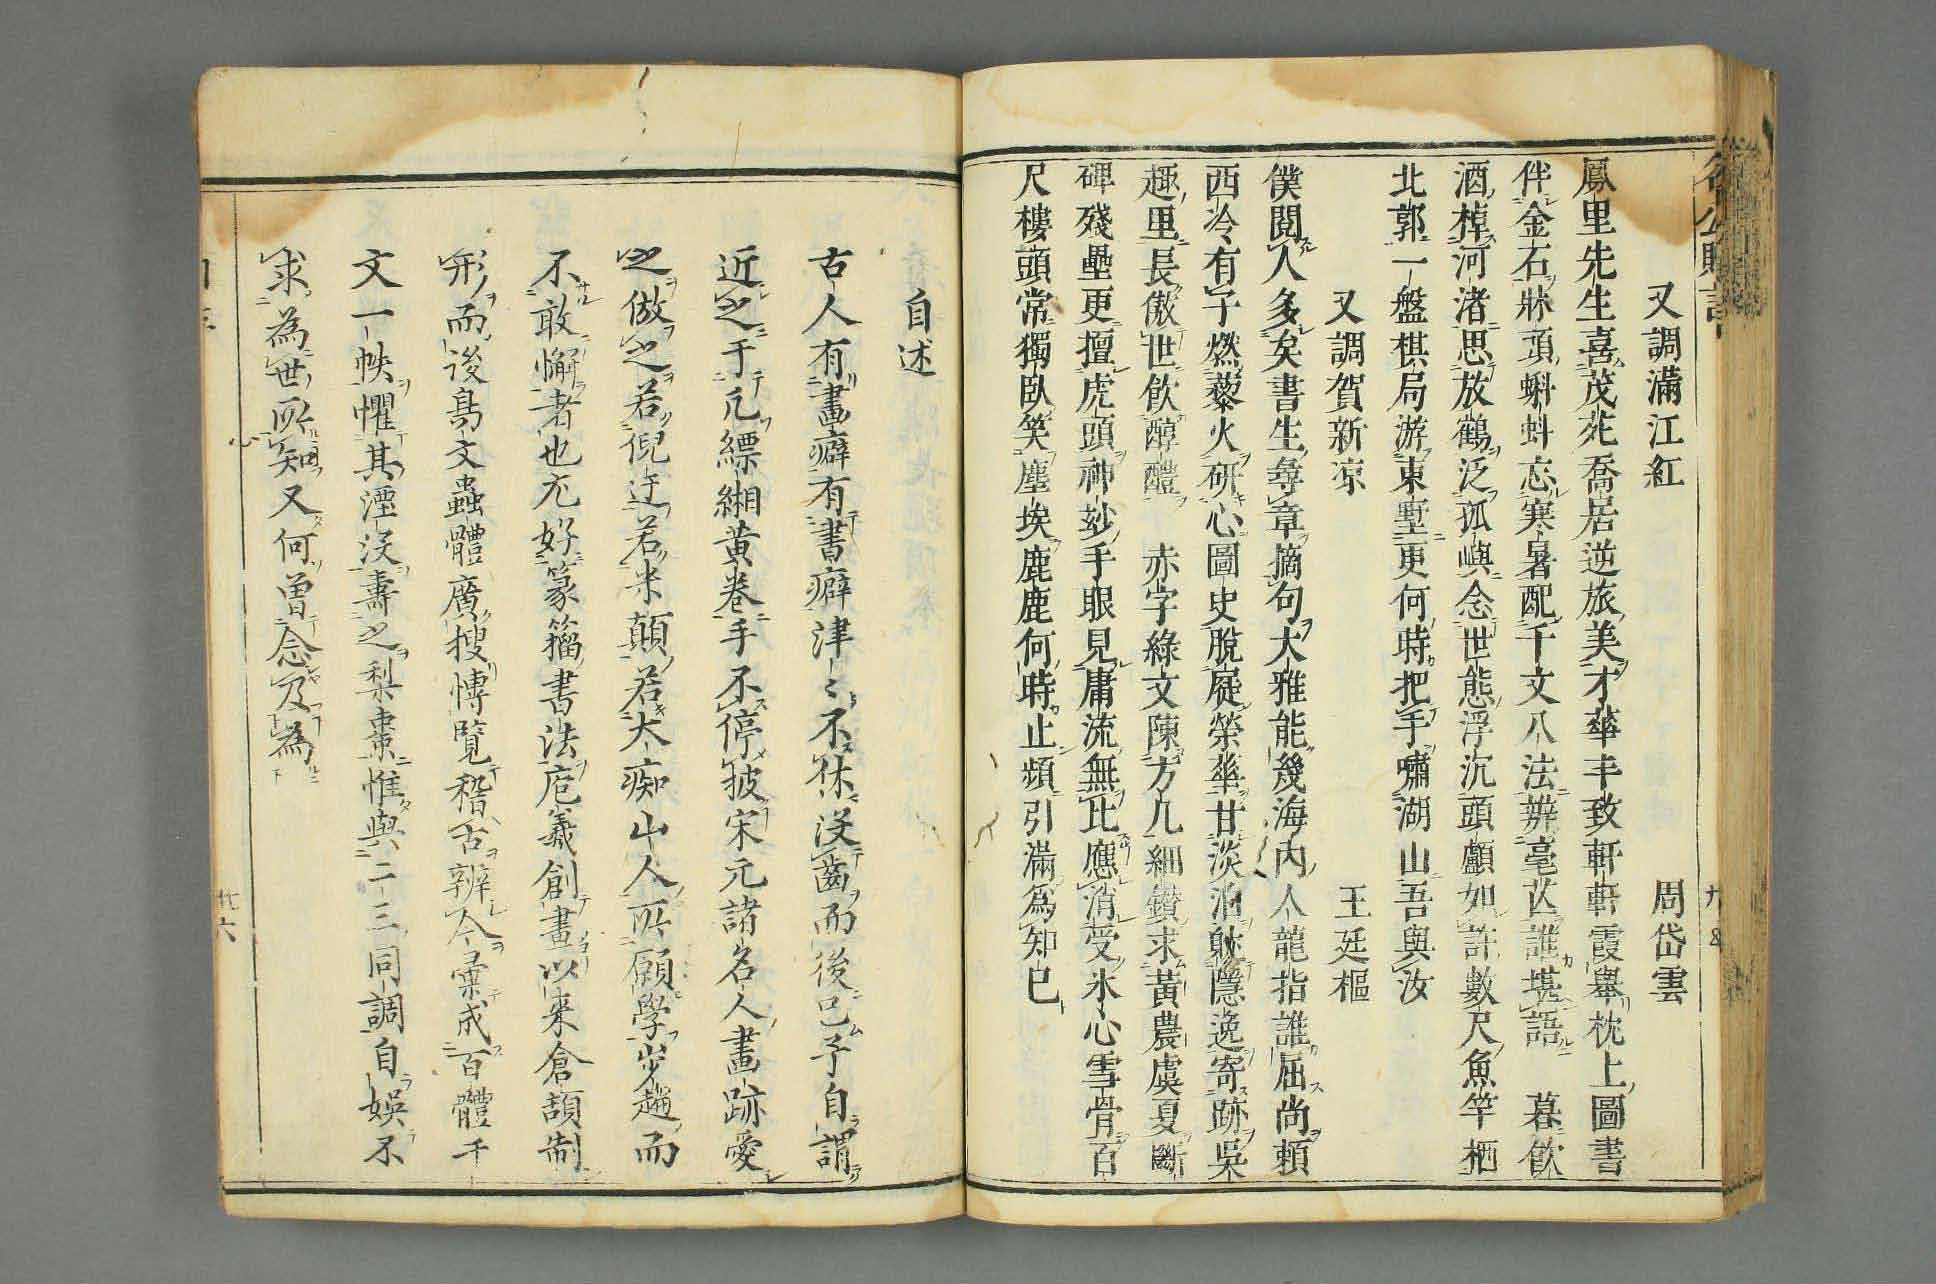 又調滿江紅　周岱雲
鳳里先生喜茂苑喬居逆旅美才華丰致軒軒霞舉枕上圖書
伴金石牀頭蝌蚪忘寒暑配千文八法辨毫芒誰堪語　暮飲
酒棹河渚思放鶴泛孤嶼念世態浮沉頭顱如許數尺魚竿栖
北郭一盤棋局游東墅更何時把手嘯湖山吾與汝
又調賀新凉　王廷樞
僕閱人多矣書生尋章摘句大雅能幾海內人龍指誰屈尚賴
西泠有子燃藜火研心圖史脫屣榮華甘淡泊躭隱逸寄跡吳
趣里長傲世飲醇醴　赤字綠文陳方几細鑚求黃農虞夏斷
碑殘壘更擅虎頭神玅手眼見庸流無比應消受氷心雪骨百
尺樓頭常獨臥笑塵埃鹿鹿何時止頻引滿爲知已
自述
古人有畫癖有書癖津〻不休沒齒而後已予自謂
近之于凢縹緗黃卷手不停披宋元諸名人畫跡愛
之倣之若倪迂若米顛若大痴山人所願學步趨而
不敢懈者也尤好篆籀書法庖羲創畫以來倉頡制
形而後鳥文蟲體廣搜博覽稽古辨今彙成百體千
文一帙懼其湮沒壽之梨棗惟與二三同調自娛不
求為世所知又何曽念及為
廿六